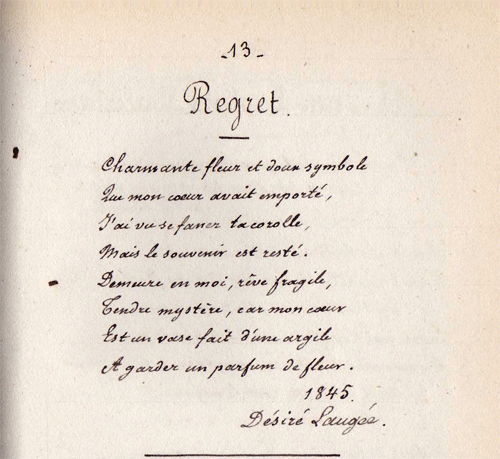 -13-
Regret.
Charmante fleur et doux symbole
Que mon cœur avait emporté,
J'ai vu se faner ta corolle,
Mais le souvenir est resté.
Demeure en moi, rêve fragile,
Tendre mystère, car mon cœur
Est un vase fait d'une argile
A garder un parfum de fleur.
1845.
Désiré Laugée.